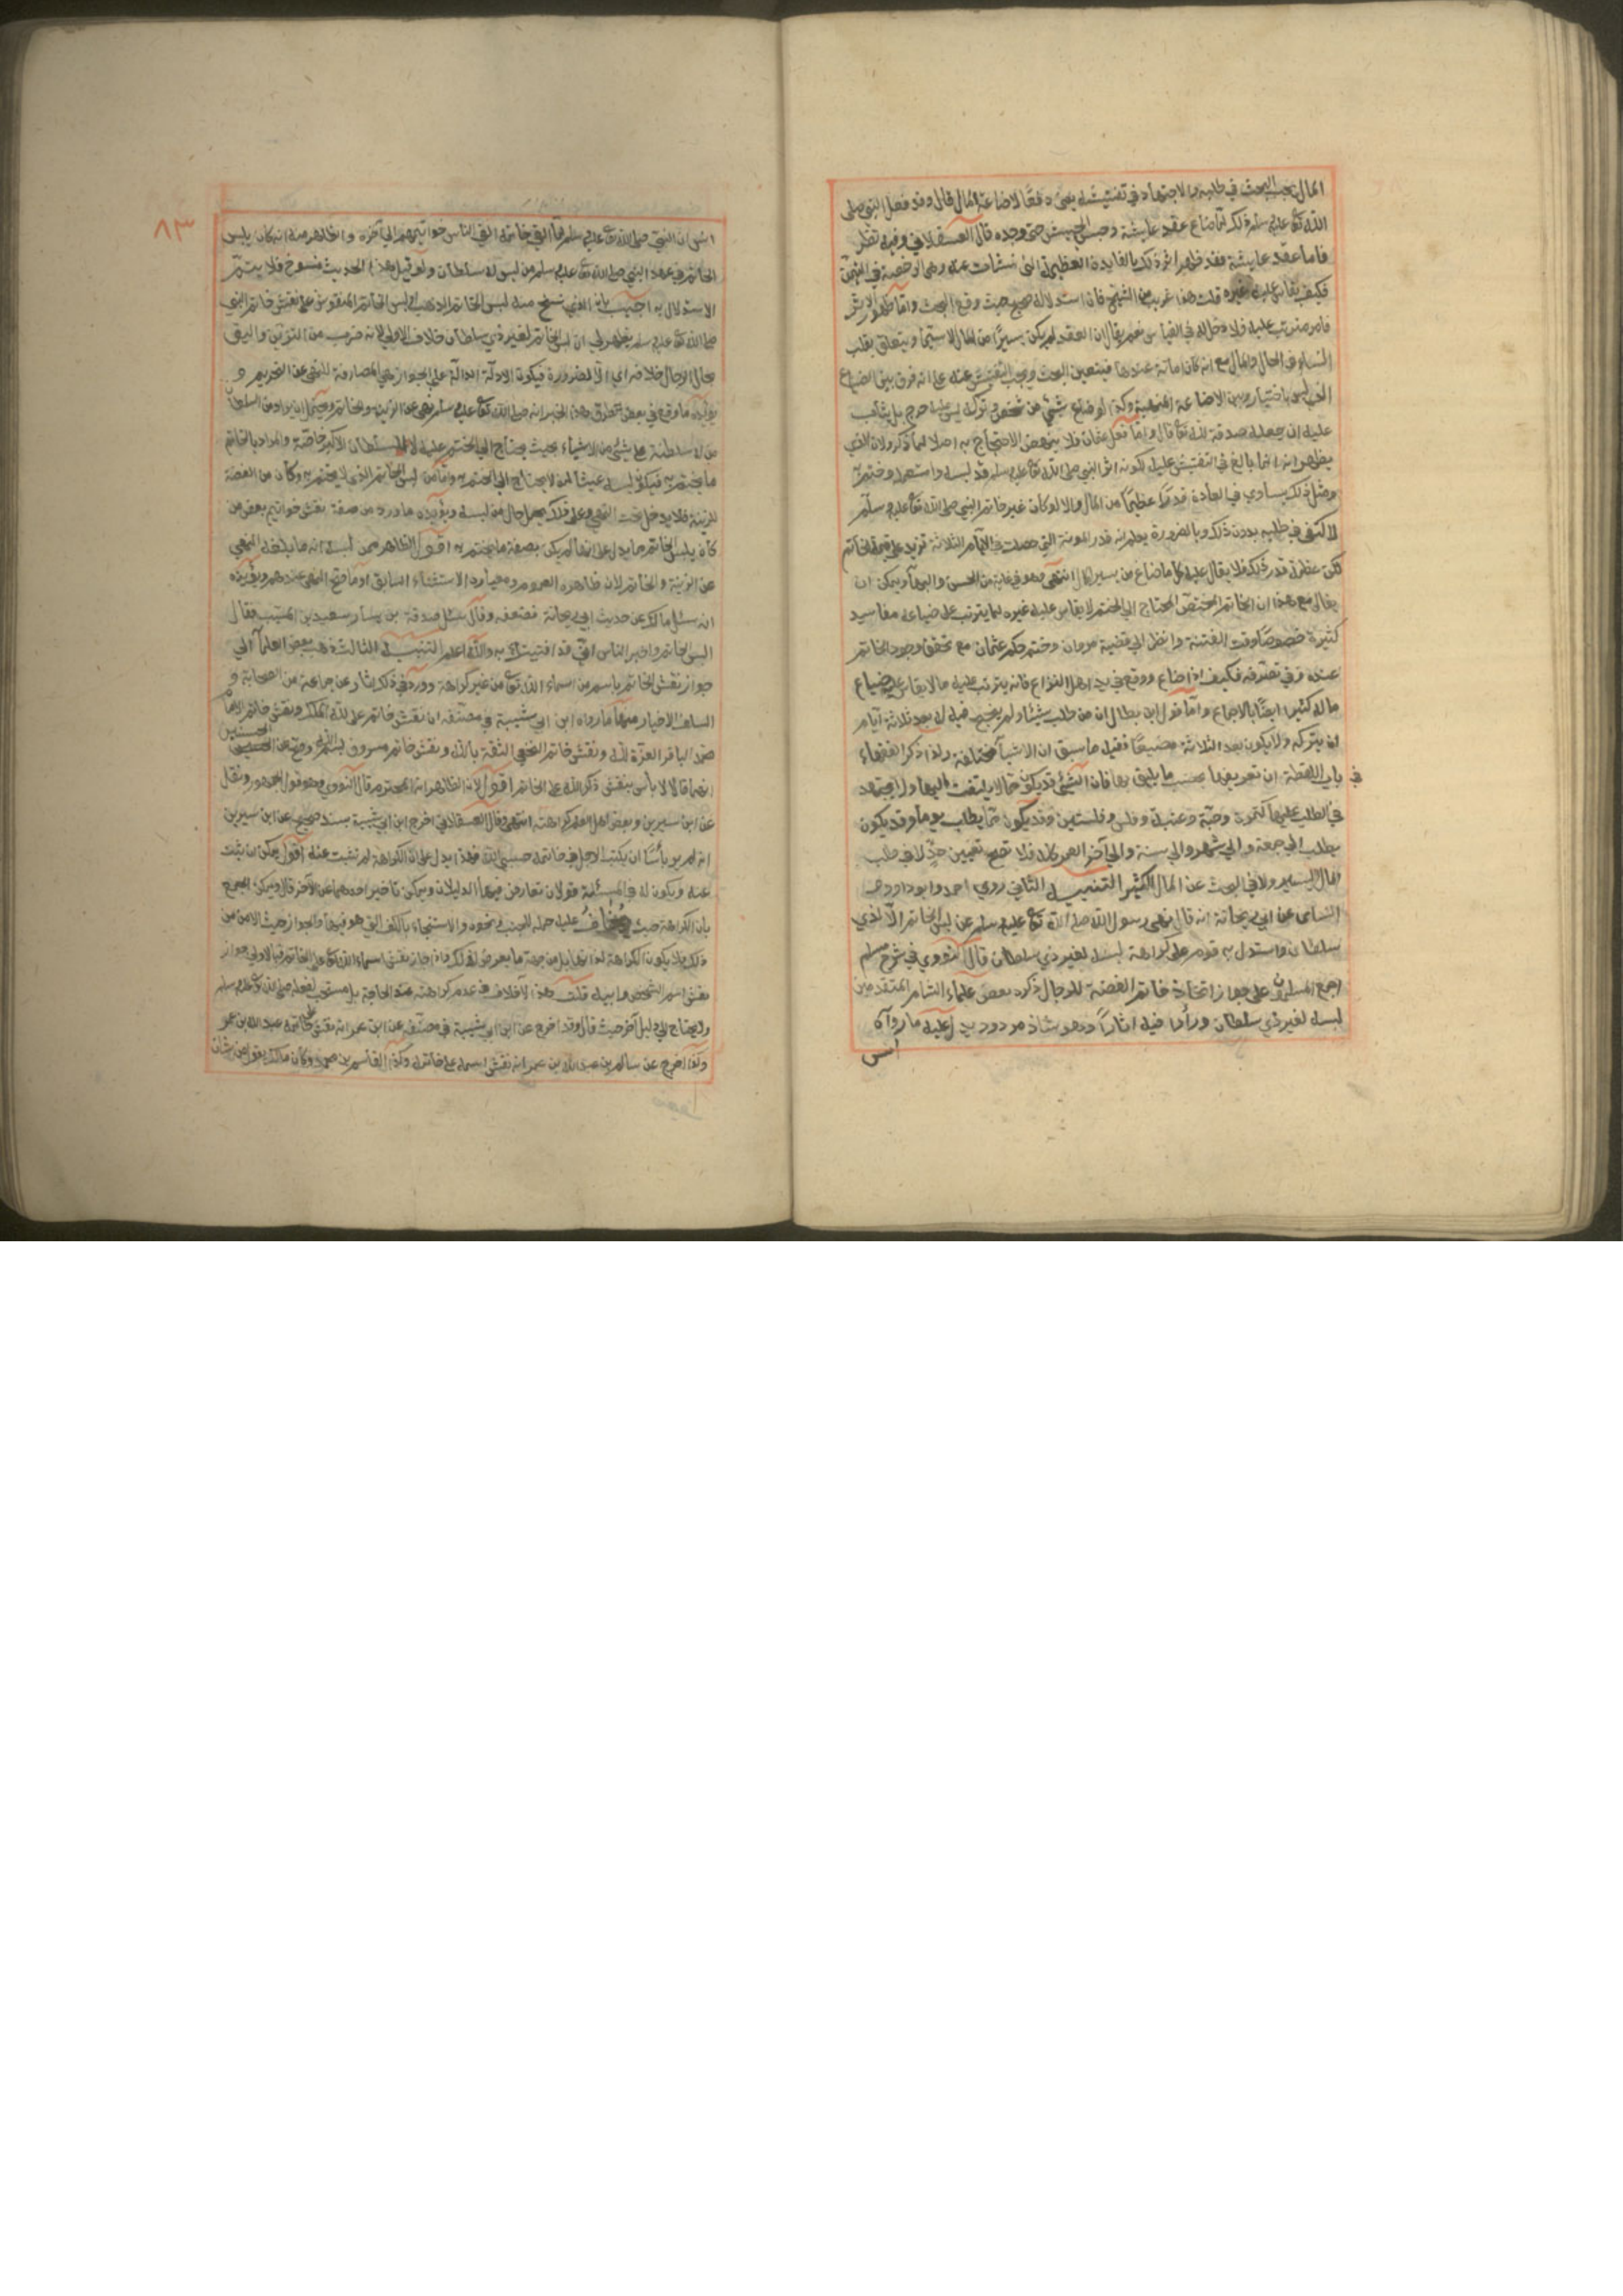 المال يجب البحث في طلبه والاجتهاد في تفتيشه يعني دفعا لاضاعة المال قال وقد فعل النبي صلى
الله تع عليه وسلم ذلك لما ضاع عقد عايشة وحبس الجيش حتى وجده قال العسقلاني وفيه نظر
فاما عقد عايشة فقد ظهر اثر ذلك بالفايدة العظيمة التي نشات عنه وهي الرخصة في التيمم
فكيف يقاس عليه غيره قلت هذا غريب من الشيخ فان استدلاله صحيح حيث وقع البحث واما ظهور الاثر
فامر مترتب عليه فلا دخل له في القياس نعم يقال ان العقد لم يكن يسيرا من المال لا سيما ويتعلق بقلب
النساء في الحال والمال مع انه كان امانة عندها فيتعين البحث ويجب التفتيش عنه على انه فرق بين الضياع
الذي ليس باختيار وبين الاضاعة المنهية وكذا لو ضاع شيء من شخص وتركه ليس عليه حرج بل يثاب
عليه ان جعله صدقة لله تع قال واما فعل عثمان فلا ينهض الاحتجاج به اصلا لما ذكر ولان الذي
يظهر انه انما بالغ في التفتيش عليه لكونه اثر النبي صلى الله تع عليه وسلم قد لبسه واستعمله وختم به
ومثل ذلك يساوي في العادة قدرا عظيما من المال والا لو كان غير خاتم النبي صلى الله تع عليه وسلم
لاكتفى في طلبه بدون ذلك وبالضرورة يعلم انه قدر المونة التي حصلت في الايام الثلاثة تزيد على قيمة الخاتم
لكن عظم قدر ذلك فلا يقال عليه كل ما ضاع من يسير المال انتهى وهو في غاية من الحسن والبهاء ويمكن ان
يقال مع هذا ان الخاتم المختص المحتاج الى الختم لا يقاس عليه غيره لما يترتب على ضياعه مفاسيد
كثيرة خصوصا وقت الفتنة وانظر الى قضية مروان وختم حكم عثمان مع تحقق وجود الخاتم
عنده وفي تصرفه فكيف اذا ضاع ووقع في يد اهل النزاع فانه يترتب عليه ما لا يقاس عليه ضياع
مال كثير ايضا بالاجماع واما قول ابن بطال ان من طلب شيئا ولم ينجح فيه له بعد ثلاثة ايام
ان يتركه ولا يكون بعد الثلاثة مضيعا ففيه ما سبق ان الاشيا مختلفة ولذا ذكر الفقهاء
في باب اللقطة ان تعريفها بحسب ما يليق بها فان الشيء قد يكون مما لا يلتفت اليها ولا يجتهد
في الطلب عليها كتمرة وحبة وعنبة وفلس وفلسين وقد يكون مما يطلب يوما وقد يكون
يطلب الى جمعة والى شهر والى سنة والى آخر العمر كله فلا تصح تعيين حد لا في طلب
المال اليسير ولا في البحث عن المال الكثير التنبيه الثاني روى احمد وابو داود و
النساى عن ابي ريحانة انه قال نهى رسول الله صلى الله تع عليه وسلم عن لبس الخاتم الا لذي
سلطان واستدل به قوم على كراهة لبسه لغير ذي سلطان قال النووي في شرح مسلم
اجمع المسلمون على جواز اتخاذ خاتم الفضة للرجال وكره بعض علماء الشام المتقدمين
لبسه لغير ذي سلطان ورأوا فيه اثارا وهو شاذ مردود يدل عليه ما رواه
انس
٨٣
انس ان النبي صلى الله تع عليه وسلم لما القى خاتمه القى الناس خواتيمهم الى آخره والظاهر منه انه كان يلبس
الخاتم في عهد النبي صلى الله تع عليه وسلم من ليس له سلطان ولو قيل هذا الحديث منسوخ فلا يتم
الاستدلال به اجيب بان الذي نسخ منه لبس الخاتم الذهب او لبس الخاتم المنقوش على نقش خاتم النبي
صلى الله تع عليه وسلم يظهر لي ان لبس الخاتم لغير ذي سلطان خلاف الاولى لانه ضرب من التزين واليق
بحال الرجال خلافه اي الا لضرورة فيكون الادلة الدالة على الجواز هي الصارفة للنهي عن التحريم و
يؤيده ما وقع في بعض الطرق هذا الخبر انه صلى الله تع عليه وسلم نهى عن الزينة والخاتم ويحتمل ان يراد من السلطان
من له سلطنة على شيء من الاشياء بحيث يحتاج الى الختم عليه لا السلطان الاكبر خاصة والمراد بالخاتم
ما يختم به فيكون لبسه عبثا لمن لا يحتاج الى الختم به واما من لبس الخاتم الذي لا يختم به وكان من الفضة
للزينة فلا يدخل تحت النهي وعلى ذلك يحمل حال من لبسه ويؤيده ما ورد من صفة نقش خواتيم بعض من
كان يلبس الخاتم مما يدل على انها لم يكن بصفة ما يختم به اقول الظاهر ممن لبسه انه ما بلغه النهي
عن الزينة والخاتم لان ظاهره العموم ومعياره الاستثناء السابق او ما صح النهي عندهم ويؤيده
انه سئل مالك عن حديث ابي ريحانة فضعفه وقال سئل صدقة بن يسار سعيد بن المسيب فقال
البس الخاتم واخبر الناس اني قد افتيتك به والله اعلم التنبيه الثالث ذهب بعض العلماء الى
جواز نقش الخاتم باسم من اسماء الله تع من غير كراهة وورد في ذلك اثار عن جماعة من الصحابة و
السلف الاخيار منها ما رواه ابن ابي شيبة في مصنفه ان نقش خاتم علي لله الملك ونقش خاتم الامام
محمد الباقر العزة لله ونقش خاتم النخعي الثقة بالله ونقش خاتم مسروق بسم الله وصح عن الحسن الحسنين
انهما قالا لا بأس بنقش ذكر الله على الخاتم اقول لان الظاهر انه المحترم قال النووي وهو قول الجمهور ونقل
عن ابن سيرين وبعض اهل العلم كراهته انتهى وقال العسقلاني اخرج ابن ابي شيبة بسند صحيح عن ابن سيرين
انه لم ير بأسا ان يكتب الرجل في خاتمه حسبي الله فهذا يدل على ان الكراهة لم تثبت عنه اقول يمكن ان يثبت
عنه ويكون له في المسئلة قولان تعارض فيهما الدليلان ويمكن تأخير احدهما عن الآخر قال ويمكن الجمع
بان الكراهة حيث يُخاف عليه حمله للجنب ونحوه والاستنجاء بالكف التي هو فيها والجواز حيث الامن من
ذلك فلا يكون الكراهة لذاتها بل من جهة ما يعرض لذلك واذا جاز نقش اسماء الله تع على الخاتم فبالاولى جواز
نقش اسم الشخص وابيه قلت هذا لا خلاف في عدم كراهته عند الحاجة بل مستحب لفعله صلى الله تع عليه وسلم
ولا يحتاج الى دليل آخر حيث قال وقد اخرج عن ابن ابي شيبة في مصنفه عن ابن عمر انه نقش على خاتمه عبد الله بن عمر
وكذا اخرج عن سالم بن عبد الله بن عمر انه نقش اسمه على خاتمه وكذا القاسم بن محمد وكان مالك يقول من شان